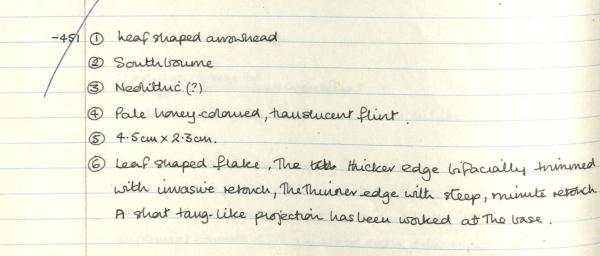 -451 ① Leaf shaped arrowhead
② Southbourne
③ Neolithic (?)
④ Pale honey-coloured, translucent flint.
⑤ 4.5cm x 2.3cm.
⑥ Leaf shaped flake, The thicker edge bifacially trimmed
with invasive retouch, The thinner edge with steep, minute retouch
A short tang-like projection has been worked at the base.